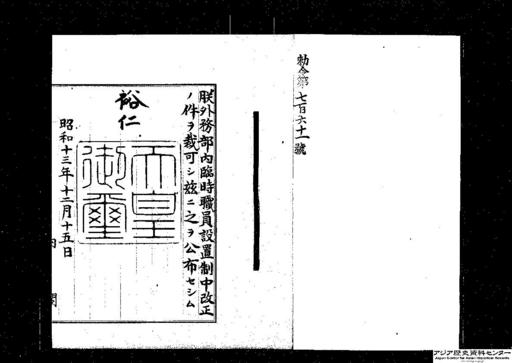 勅令第七百六十一號
朕外務部內臨時職員設置制中改正
ノ件ヲ裁可シ茲ニ之ヲ公布セシム
裕仁
天皇
御璽
昭和十三年十二月十五日
内閣
アジア歴史資料センター
Japan Center for Asian Historical Records